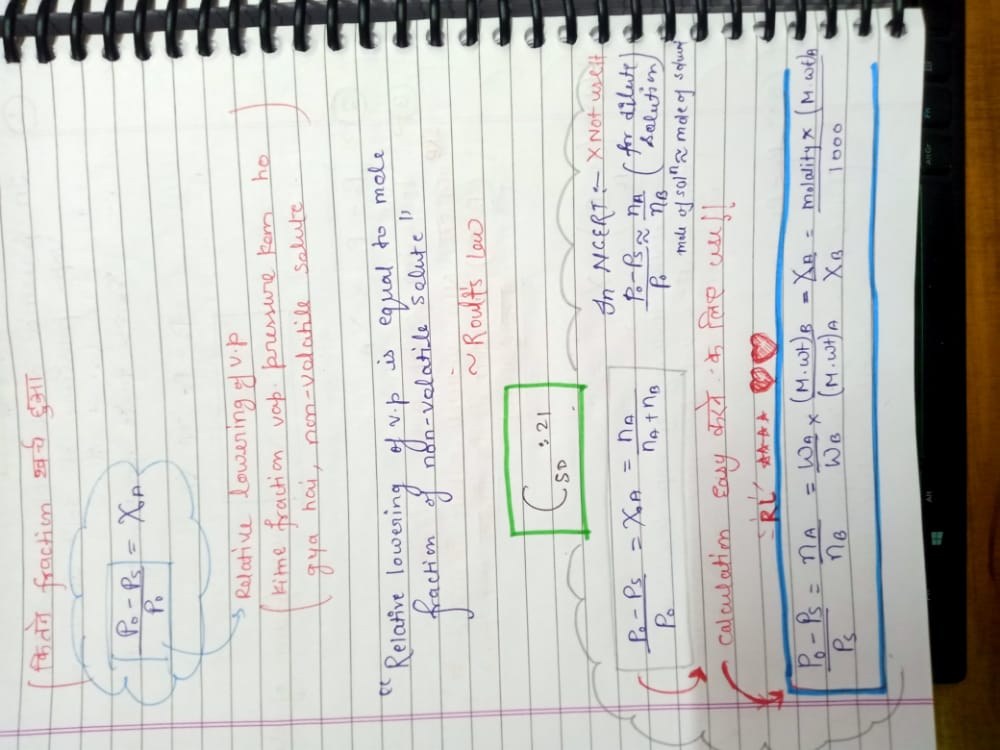 (कितने fraction खर्च हुआ
P₀-Pₛ/P₀ = Xₐ
Relative lowering of v.p
(kitne fraction vap. pressure kam ho
gaya hai, non-volatile solute)
"Relative lowering of v.p is equal to mole
fraction of non-volatile solute"
~ Roult's law
SD : 21
In NCERT :- × Not use it
P₀-Pₛ/P₀ ≈ nA/nB (for dilute solution)
mole of solⁿ ≈ mole of solvent
P₀-Pₛ/P₀ = XA = nA/nA+nB
Calculation easy करने के लिए use!!
"RL"
P₀-Pₛ/Pₛ = nA/nB = WA/WB × (M.wt)B/(M.wt)A = XA/XB = molality × (M.wt)A/1000
Alt
AltGr
Fn